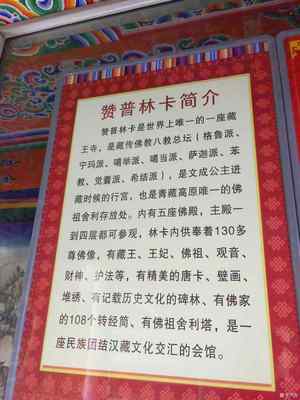 赞普林卡简介
赞普林卡是世界上唯一的一座藏
王寺，是藏传佛教八教总坛（格鲁派、
宁玛派、噶举派、噶当派、萨迦派、苯
教、觉囊派、希结派），是文成公主进
藏时候的行宫，也是青藏高原唯一的佛
祖舍利存放处。内有五座佛殿，主殿一
到四层都可参观，林卡内供奉着130多
尊佛像，有藏王、王妃、佛祖、观音、
财神、护法等，有精美的唐卡、壁画、
堆绣、有记载历史文化的碑林、有佛家
的108个转经筒、有佛祖舍利塔，是一
座民族团结汉藏文化交汇的会馆。